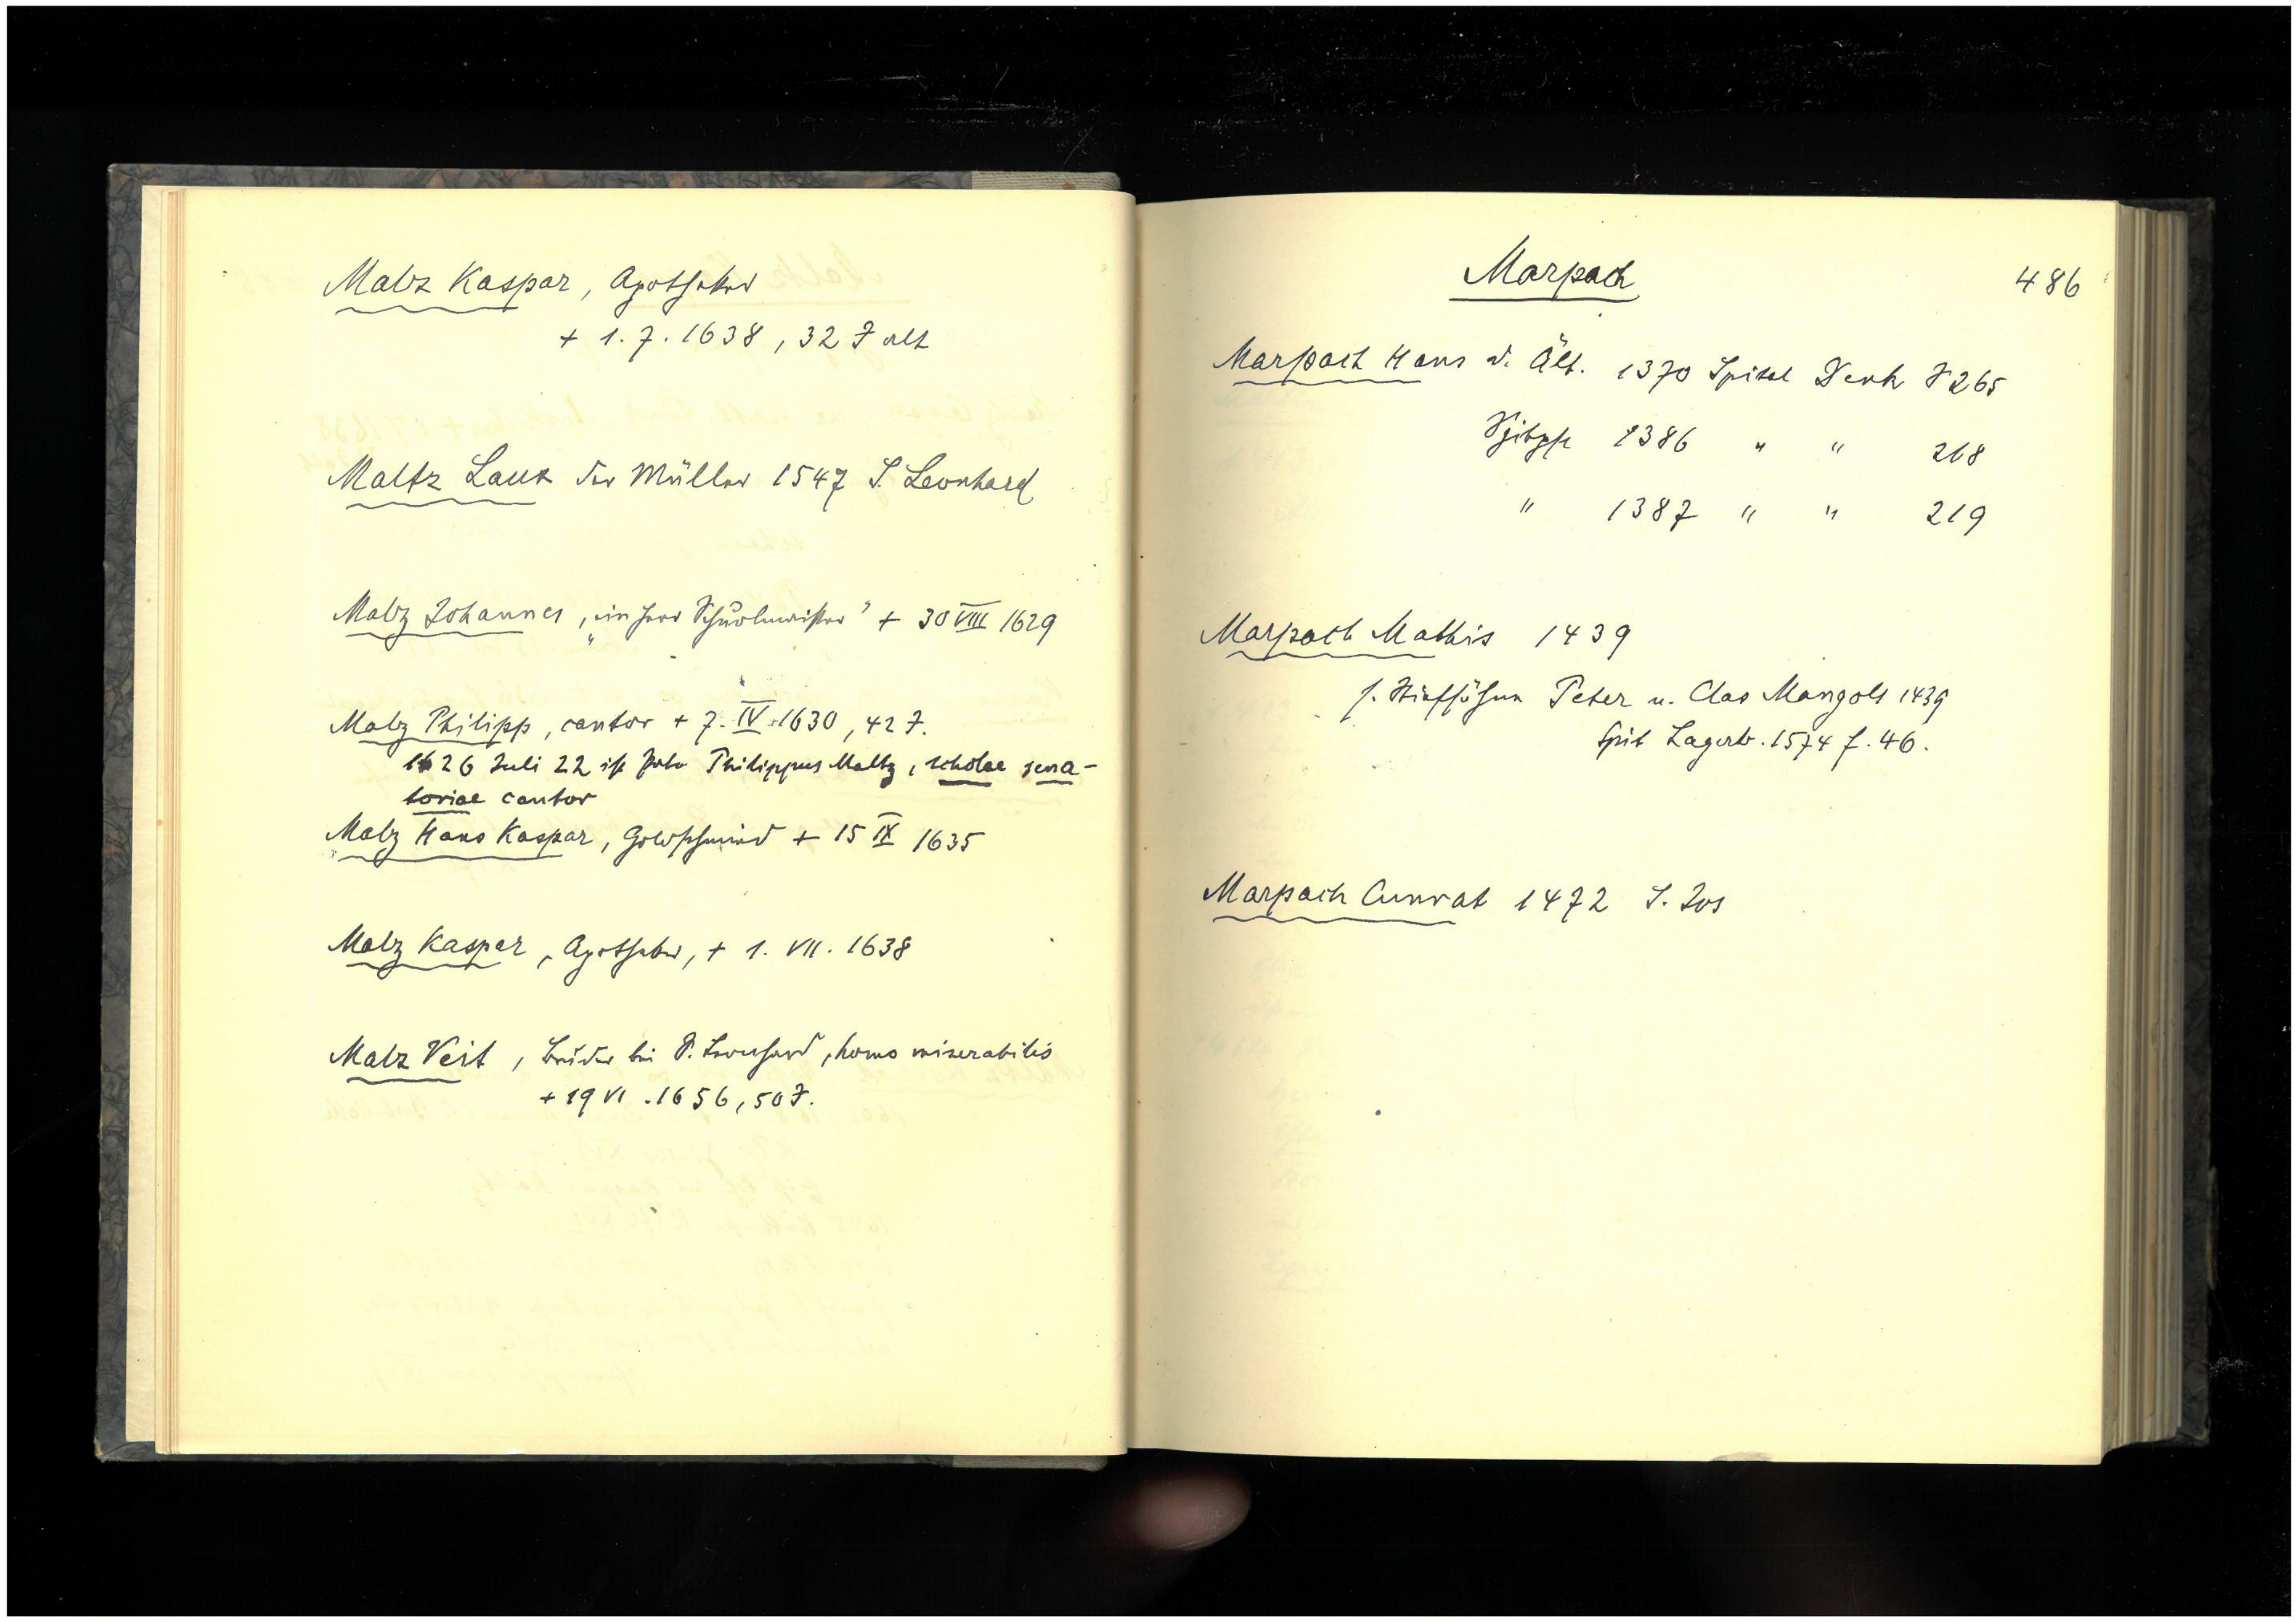 Maltz Kaspar, Apotheker
+ 1. 7. 1638, 32 J alt
Maltz Laux der Müller 1547 S. Leonhard
Maltz Johannes, „ein Herr Schuolmeister" + 30 VIII 1629
Maltz Philipp, cantor + 7. IV. 1630, 42 J.
1626 Juli 22 ist Philippus Maltz, scholae sena-
toriae cantor
Maltz Hans Kaspar, Goldschmied + 15 IX 1635
Maltz Kaspar, Apotheker, + 1. VII. 1638
Malz Veit, Bruder bei S. Leonhard, homo miserabilis
+ 19 VI. 1656, 50 J.
Marpach
486
Marpach Hans d. Ält. 1370 Spital Denk S 265
1386 " " 218
" 1387 " " 219
Marpach Mathis 1439
s. Stiefsöhne Peter u. Clas Mangolt 1439
Spit Lagerb. 1574 f. 46.
Marpach Cunrat 1472 S. Jos